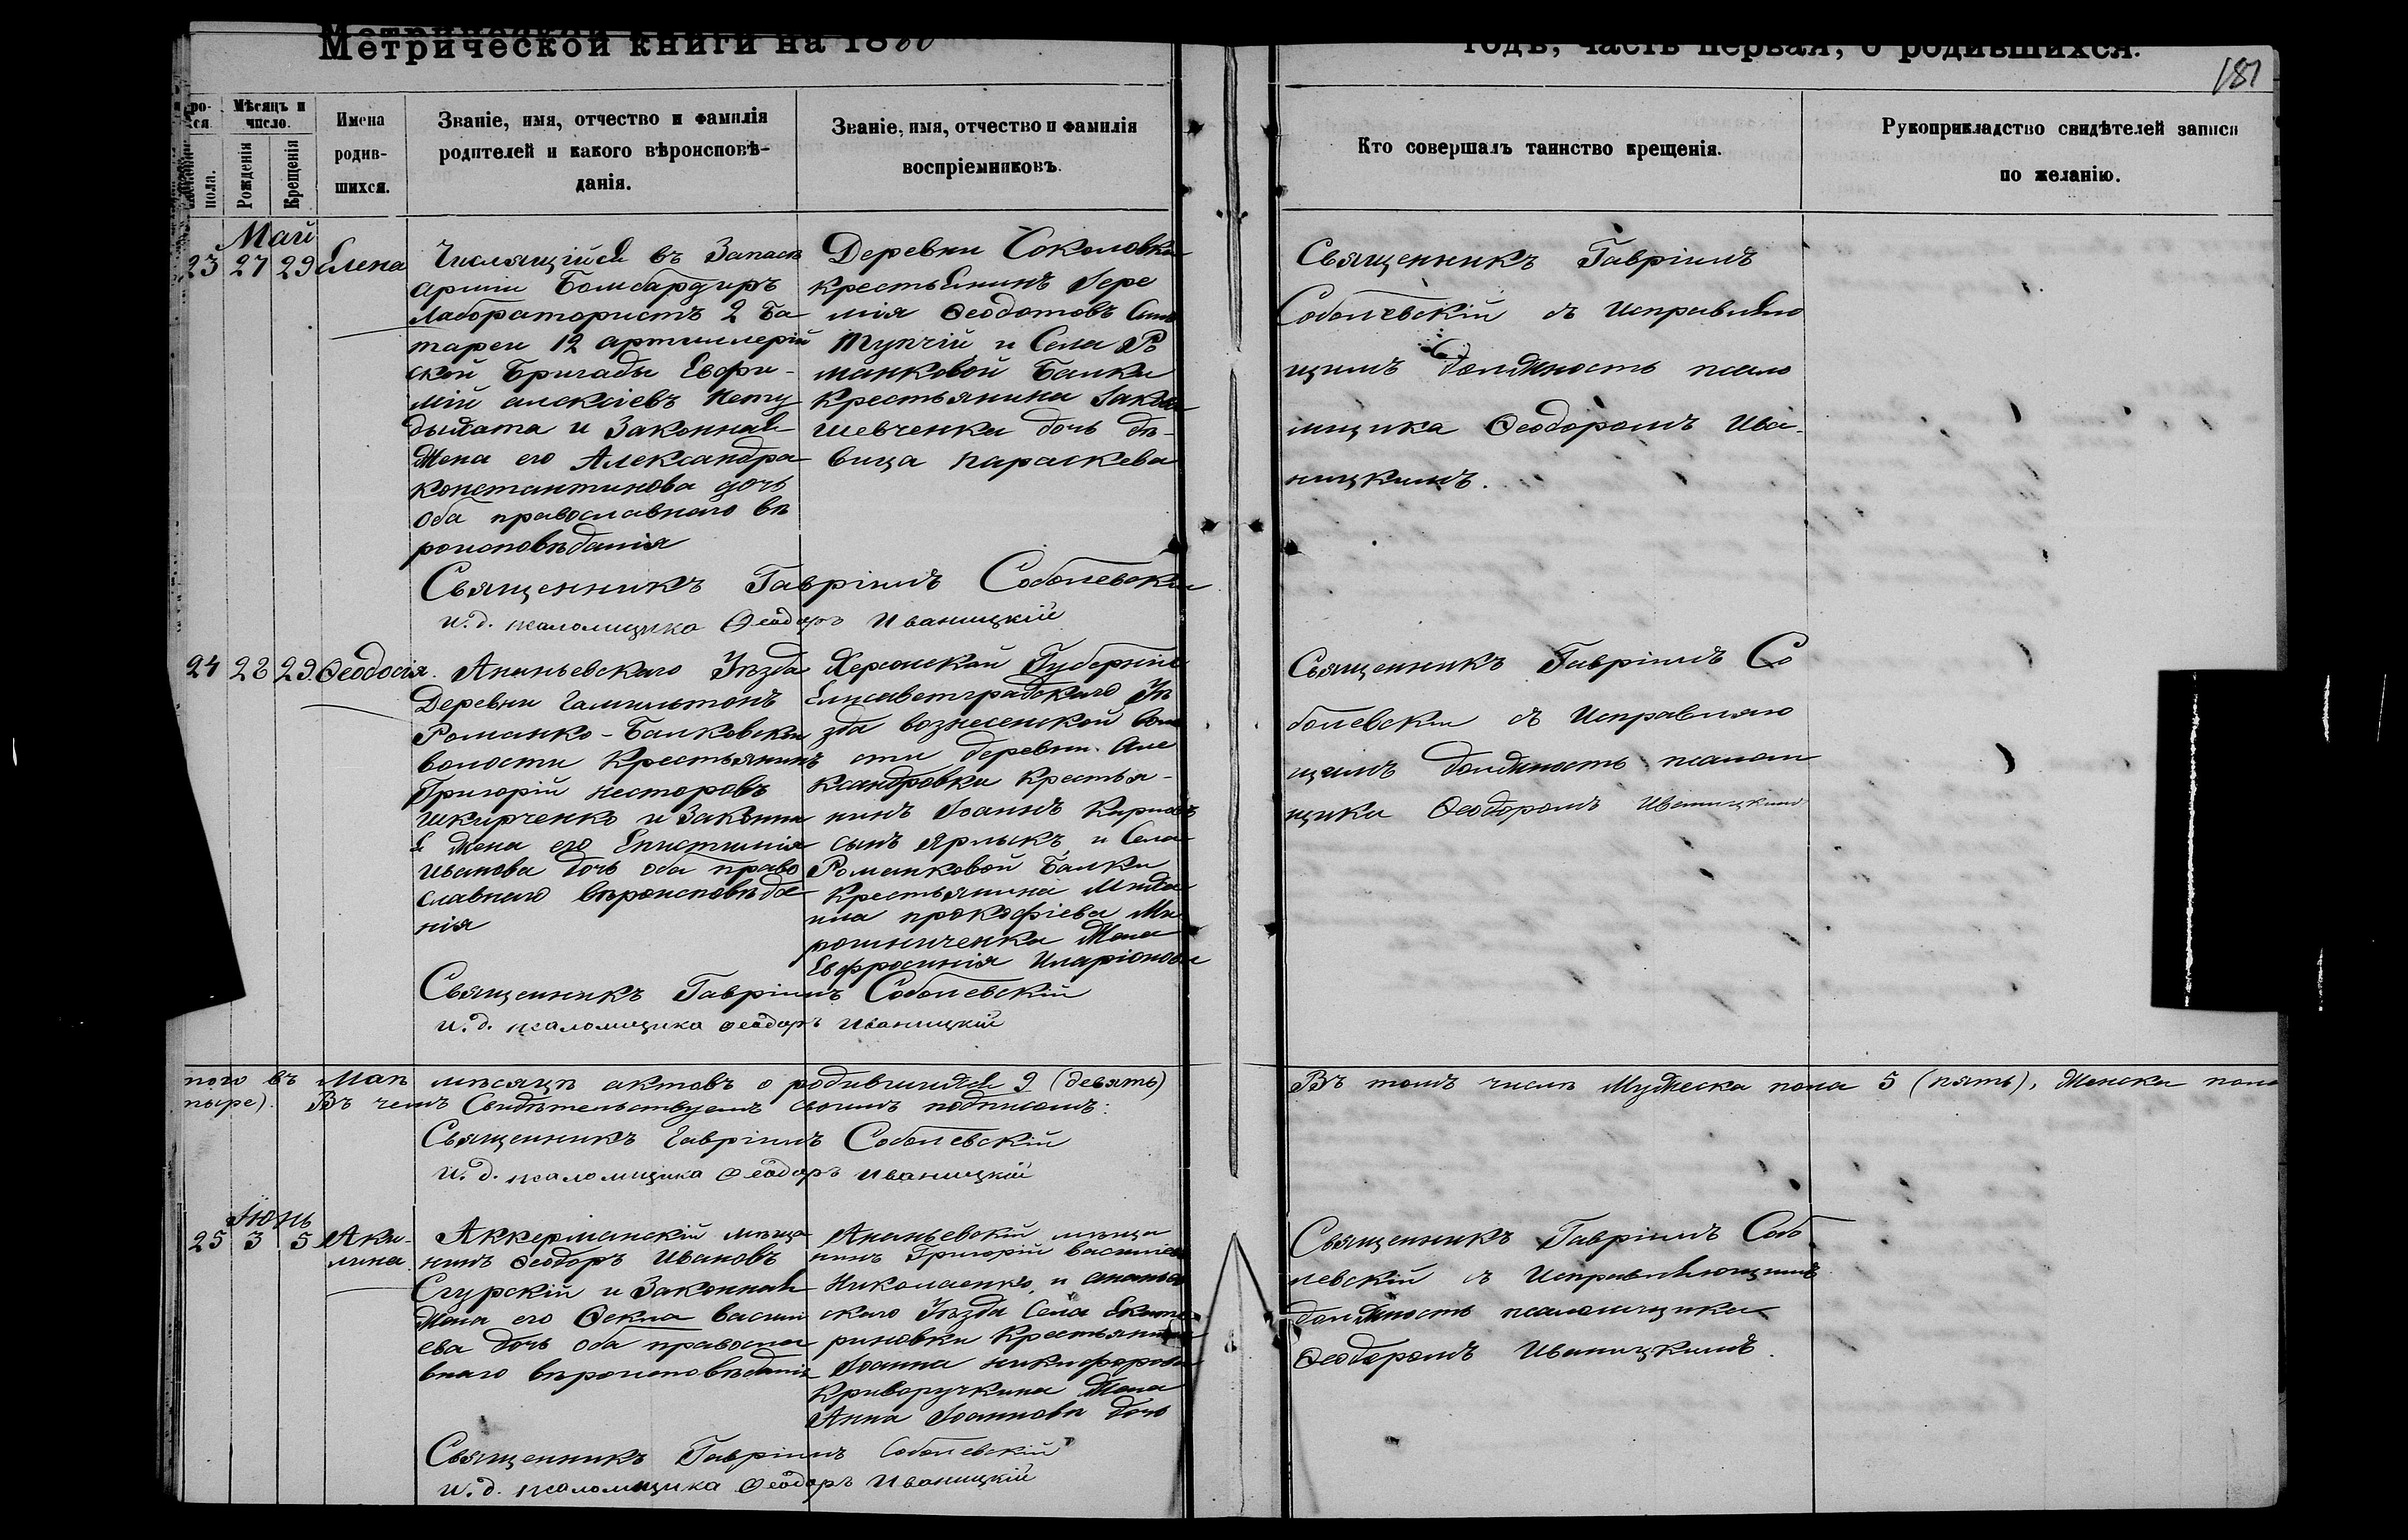 Метрической книги на 1880
годъ, часть первая, о родившихся.
181
ро-
ся.
Мѣсяцъ и
число.
пола.
Рожденія
Крещенія
Имена
родив-
шихся.
Званіе, имя, отчество и фамилія
родителей и какого вѣроисповѣ-
данія.
Званіе, имя, отчество и фамилія
воспріемниковъ.
Кто совершалъ таинство крещенія.
Рукоприкладство свидѣтелей записи
по желанію.
Май
23 27 29 Елена
Числящійся въ Запасѣ
арміи Бомбардиръ
Лаборатористъ 2 Ба
тареи 12 артиллерій
ской Бригады Евфи-
мій алексіевъ
и Законная
Жена его Александра
Константинова дочь
Оба православнаго вѣ
роисповѣданія
Деревни Соколовки
крестьянинъ Іере
мія Феодотовъ Сынъ
Тупчій и Села Ро
манковой Балки
Крестьянина Іакова
Шевченка дочь дѣ-
вица Параскева
Священникъ Гавріилъ
Соболевскій съ Исправляю
щимъ должность псало
мщика Феодоромъ Ива-
ницкимъ.
Священникъ Гавріилъ Соболевскій
и. д. псаломщика Феодоръ Иваницкій
24 28 29. Феодосія.
Ананьевскаго Уѣзда
Деревни Гамильтонъ
Романко-Балковской
волости Крестьянинъ
Григорій Несторовъ
Шкирченко и Законна
я Жена его Епистимія
Иванова дочь оба право
славнаго вѣроисповѣда
нія
Херсонской Губерніи
Елисаветградскаго Уѣ
зда вознесенской воло
сти деревни Але
ксандровки Крестья-
нинъ Іоаннъ Кириловъ
сынъ Ярлыкъ, и Села
Романковой Балки
Крестьянина Михаи
ила прокофіева Ми
рошниченка Жена
Евфросинія Иларіонова
Священникъ Гавріилъ Со
болевскій съ Исправляю
щимъ должность псалом
щика Феодоромъ Иваницкимъ
Священникъ Гавріилъ Соболевскій
и. д. псаломщика Феодоръ Иваницкій
того въ Маѣ мѣсяцѣ актовъ о родившихся 9 (девять)
Въ томъ числѣ Мужеска пола 5 (пять), Женска пола
тыре). Въ чемъ Свидѣтельствуемъ своимъ подписомъ:
Священникъ Гавріилъ Соболевскій
и. д. псаломщика Феодоръ Иваницкій
Іюнь
25 3 5 Аки-
лина.
Аккерманскій мѣща
нинъ Феодоръ Ивановъ
Сгурскій и Законная
Жена его Фекла васил
ева дочь оба правосла
внаго вѣроисповѣданія
Ананьевскій мѣща
нинъ Григорій василіевъ
Николаенко, и ананьев
скаго Уѣзда Села Екате
риновки Крестьянина
Іоанна никифорова
Криворучкина Жена
Анна Іоаннова дочь
Священникъ Гавріилъ Собо
левскій съ Исправляющимъ
должность псаломщика
Феодоромъ Иваницкимъ.
Священникъ Гавріилъ Соболевскій
и. д. псаломщика Феодоръ Иваницкій